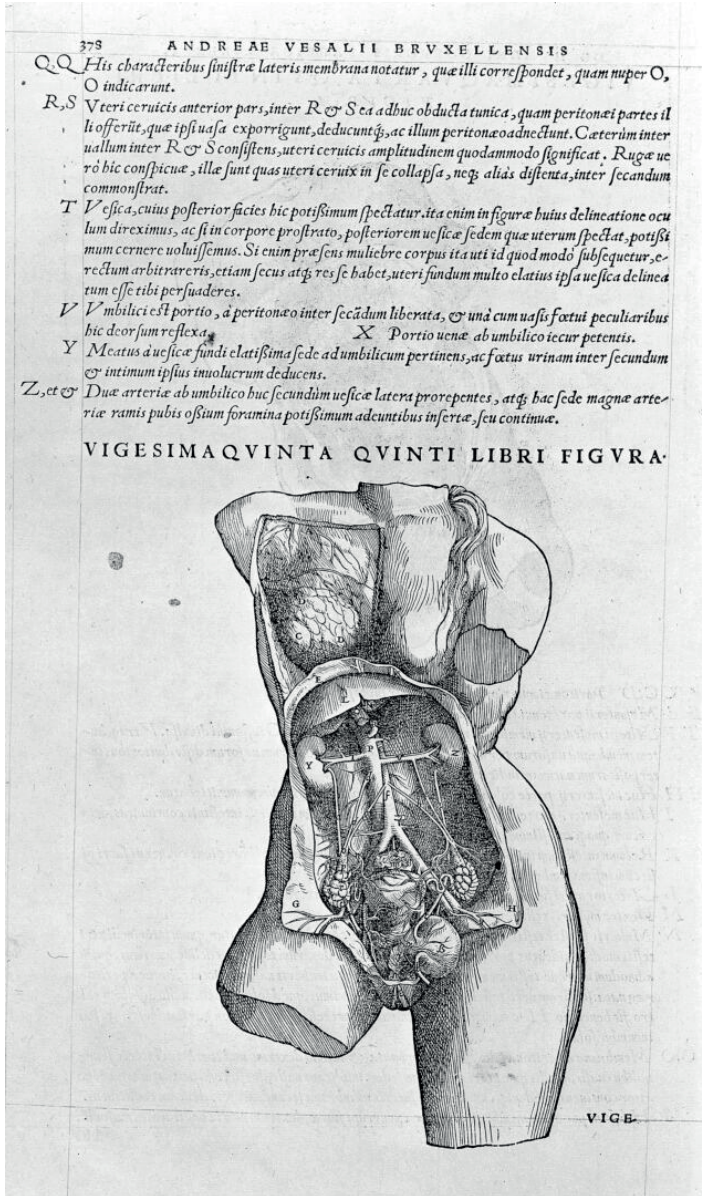 378 ANDREAE VESALII BRVXELLENSIS
Q.Q His characteribus sinistræ lateris membrana notatur, quæ illi correspondet, quam nuper O,
O indicarunt.
R,S Vteri ceruicis anterior pars, inter R & S ea adhuc obducta tunica, quam peritonæi partes il
li offerũt, quæ ipsi uasa exporrigunt, deducuntq́;, ac illum peritonæo adnectunt. Cæterùm inter
uallum inter R & S consistens, uteri ceruicis amplitudinem quodammodo significat. Rugæ ue
rò hic conspicuæ, illæ sunt quas uteri ceruix in se collapsa, neq; aliàs distenta, inter secandum
commonstrat.
T Vesica, cuius posterior facies hic potißimum spectatur. ita enim in figuræ huius delineatione ocu
lum direximus, ac si in corpore prostrato, posteriorem uesicæ sedem quæ uterum spectat, potißi
mum cernere uoluissemus. Si enim præsens muliebre corpus ita uti id quod modò subsequetur, e-
rectum arbitrareris, etiam secus atq; res se habet, uteri fundum multo elatius ipsa uesica delinea
tum esse tibi persuaderes.
V Vmbilici est portio, à peritonæo inter secãdum liberata, & unà cum uasis fœtui peculiaribus
hic deorsum reflexa. X Portio uenæ ab umbilico iecur petentis.
Y Meatus à uesicæ fundi elatißima sede ad umbilicum pertinens, ac fœtus urinam inter secundum
& intimum ipsius inuolucrum deducens.
Z, et & Duæ arteriæ ab umbilico huc secundùm uesicæ latera prorepentes, atq; hac sede magnæ arte-
riæ ramis pubis oßium foramina potißimum adeuntibus insertæ, seu continuæ.
VIGESIMAQVINTA QVINTI LIBRI FIGVRA.
D
C
E
L
P
Y Z
G H
B
VIGE-